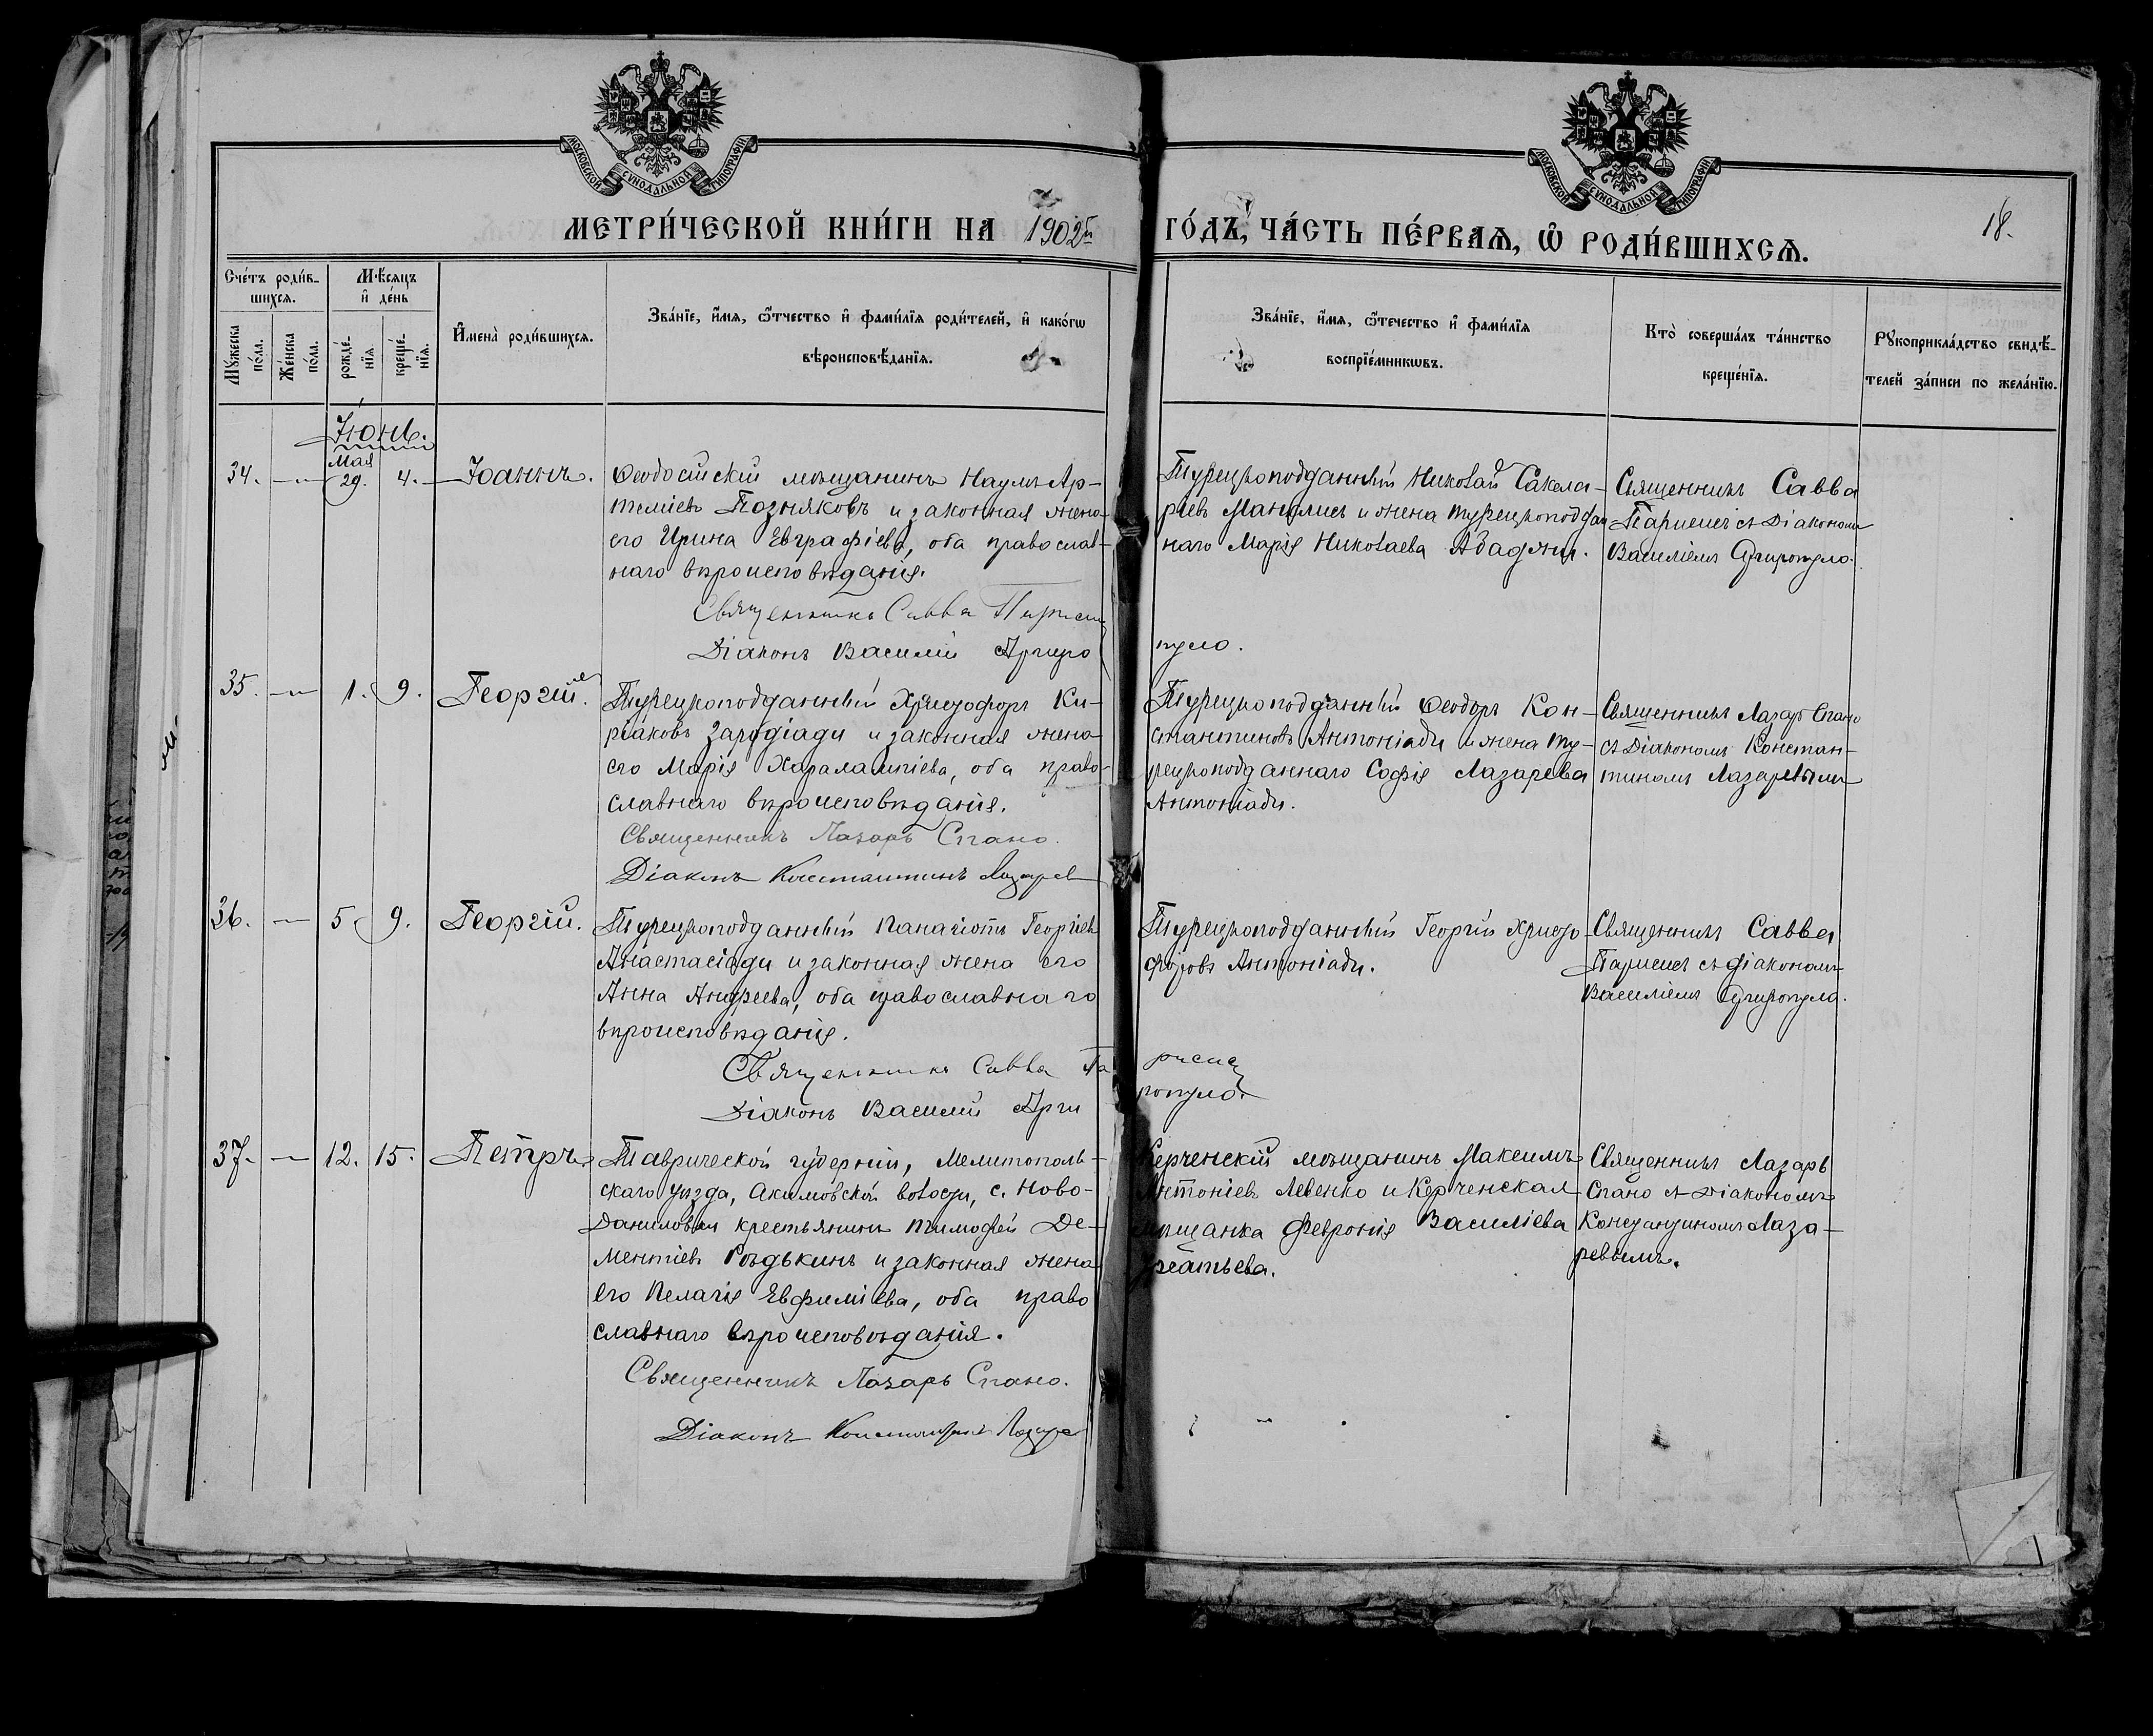 МОСКОВСКОЙ СУНОДАЛЬНОЙ ТИПОГРАФІИ
МОСКОВСКОЙ СУНОДАЛЬНОЙ ТИПОГРАФІИ
МЕТРИ́ЧЕСКОЙ КНИ́ГИ НА 1902й
ГО́ДЪ, ЧА́СТЬ ПЕ́РВАѦ, Ѡ РОДИ́ВШИХСѦ.
18.
Сче́тъ роди́в-
шихсѧ.
Мѣ́сѧцъ
и҆ де́нь
Мꙋ́жеска
по́ла.
Же́нска
по́ла.
рожде́-
нїѧ.
креще́-
нїѧ.
И҆мена̀ роди́вшихсѧ.
Зва́нїе, и҆́мѧ, ѻ҆́тчество и҆ фами́лїѧ роди́телей, и҆ како́гѡ
вѣроисповѣ́данїѧ.
Зва́нїе, и҆́мѧ, ѻ҆́течество и҆ фами́лїѧ
воспрїе́мникѡвъ.
Кто̀ соверша́лъ та́инство
креще́нїѧ.
Рꙋкоприкла́дство свидѣ́-
телей за́писи по жела́нїю.
Іюнь.
Мая
34. — 29. 4. Іоаннъ.
Ѳеодосійскій мѣщанинъ Наумъ Ар-
теміевъ Позняковъ и законная жена
его Ирина Евграфіева, оба православ-
наго вѣроисповѣданія.
Священникъ Савва
Діаконъ Василій Аргиро
пуло.
Турецкоподданный Николай Сакела-
ріевъ и жена турецкоподдан
наго Марія Николаева
Священникъ Савва
съ Діакономъ
Василіемъ Аргиропуло.
35. — 1. 9. Георгій.
Турецкоподданный Христофоръ Ки-
ріаковъ и законная жена
его Марія Харалампіева, оба право-
славнаго вѣроисповѣданія.
Священникъ Лазарь Спано.
Діаконъ Константинъ Лазарев
Турецкоподданный Ѳеодоръ Кон-
стантиновъ Антоніади и жена ту-
рецкоподданнаго Софія Лазарева
Антоніади.
Священникъ Лазарь Спано
съ Діакономъ Констан-
тиномъ Лазаревымъ
36. — 5 9. Георгій.
Турецкоподданный Панагіотъ Георгіевъ
Анастасіади и законная жена его
Анна Андреева, оба православнаго
вѣроисповѣданія.
Священникъ Савва Па
Діаконъ Василій Арги
ропуло.
Турецкоподданный Георгій Христо-
форовъ Антоніади.
Священникъ Савва
съ Діакономъ
Василіемъ Аргиропуло.
37. — 12. 15. Петръ.
Таврической губерніи, Мелитополь-
скаго уѣзда, Акимовской волости, с. Ново-
Даниловки крестьянинъ Тимофей Де-
ментіевъ Рѣдькинъ и законная жена
его Пелагія Евфиміева, оба право
славнаго вѣроисповѣданія.
Священникъ Лазарь Спано.
Діаконъ Константинъ Лазаре
Керченскій мѣщанинъ Максимъ
Антоніевъ Левенко и Керченская
мѣщанка Февронія Василіева
Священникъ Лазарь
Спано съ Діакономъ
Константиномъ Лаза-
ревымъ.